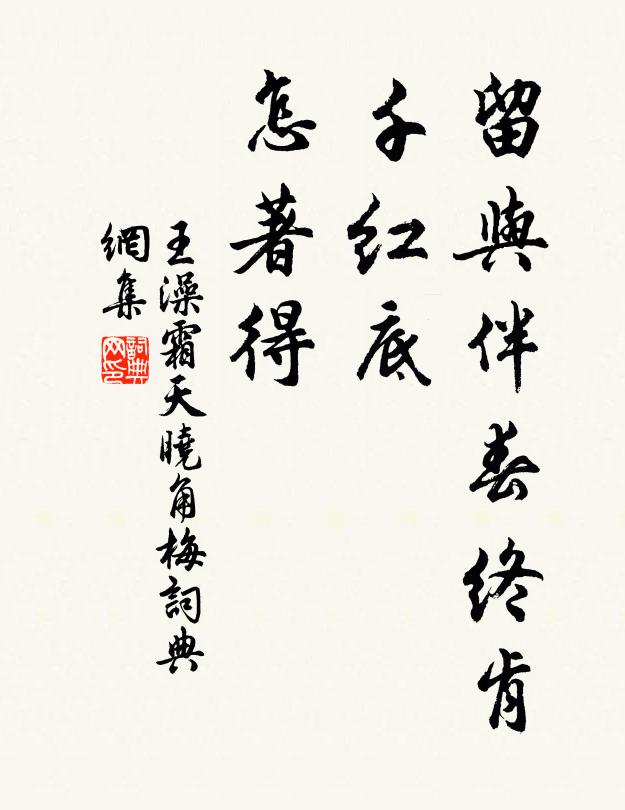 留與伴春終肯
千紅底
怎著得
王澡霜天曉角梅詞典
網集
詞典網印